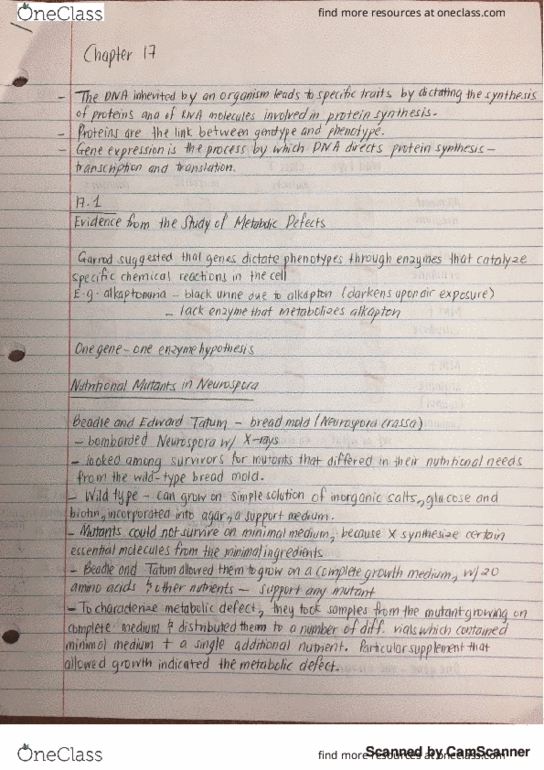 OneClass
find more resources at oneclass.com
Chapter 17
- The DNA inherited by an organism leads to specific traits by dictating the synthesis
of proteins and of RNA molecules involved in protein synthesis.
- Proteins are the link between genotype and phenotype.
- Gene expression is the process by which DNA directs protein synthesis -
transcription and translation.
17.1
Evidence from the Study of Metabolic Defects
Garrod suggested that genes dictate phenotypes through enzymes that catalyze
specific chemical reactions in the cell
E.g. alkaptonuria - black urine due to alkapton (darkens upon air exposure)
- lack enzyme that metabolizes alkapton
One gene - one enzyme hypothesis
Nutritional Mutants in Neurospora
Beadle and Edward Tatum - bread mold (Neurospora crassa)
- bombarded Neurospora w/ X-rays
- looked among survivors for mutants that differed in their nutritional needs
from the wild-type bread mold.
- Wild type - can grow on simple solution of inorganic salts, glucose and
biotin, incorporated into agar, a support medium.
- Mutants could not survive on minimal medium, because X synthesize certain
essential molecules from the minimal ingredients
- Beadle and Tatum allowed them to grow on a complete growth medium, w/ 20
amino acids & other nutrients - support any mutant
- To characterize metabolic defect, they took samples from the mutant growing on
complete medium & distributed them to a number of diff. vials which contained
minimal medium + a single additional nutrient. Particular supplement that
allowed growth indicated the metabolic defect.
OneClass
find more resources at oneclass.com
Scanned by CamScanner